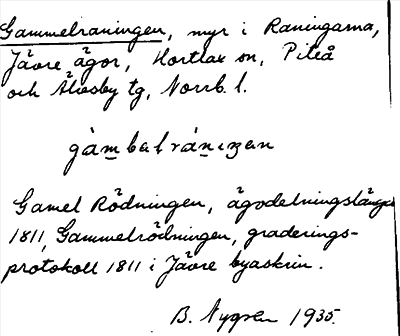 Gammelraningen, myr i Raningarna,
Jävre ägor, Hortlax sn, Piteå
och Älvsby tg, Norrb. l.
gàmbalrán
Gamel Rödningen, ägodelningslängd
1811, Gammelrödningen, graderings-
protokoll 1811 i Jävre byaskrin.
B. Nygren 1935.